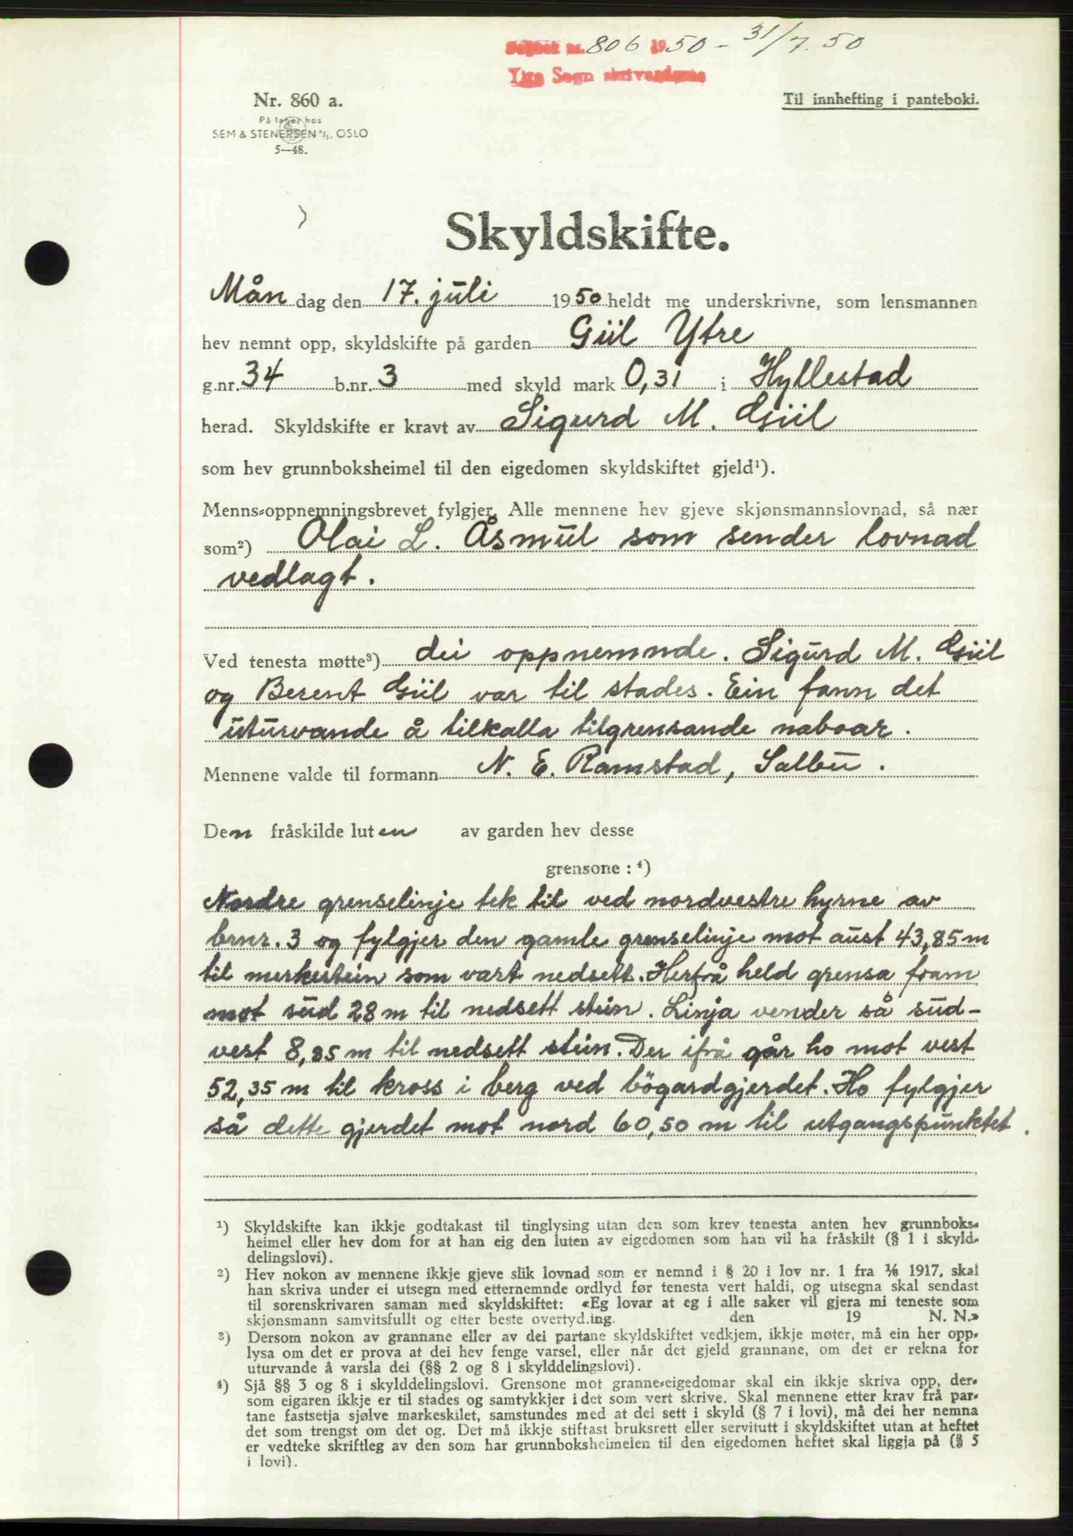 Dagbok nr. 806 1950 - 31/7. 50
Ytre Sogn skrivardøme
Nr. 860 a.
Til innhefting i panteboki.
På lager hos
SEM & STENERSEN A/S. OSLO
5—48.
Skyldskifte.
Mån dag den 17. juli 1950 heldt me underskrivne, som lensmannen
hev nemnt opp, skyldskifte på garden Giil Ytre
g.nr. 34 b.nr. 3 med skyld mark 0,31 i Hyllestad
herad. Skyldskifte er kravt av Sigurd M. Giil
som hev grunnboksheimel til den eigedomen skyldskiftet gjeld¹).
Menns-oppnemningsbrevet fylgjer. Alle mennene hev gjeve skjønsmannslovnad, så nær
som²) Olai L. Åsmul som sender lovnad
vedlagt.
Ved tenesta møtte³) dei oppnemnde. Sigurd M. Giil
og Berent Giil var til stades. Ein fann det
uturvande å tilkalla tilgrensande naboar.
Mennene valde til formann N. E. Ramstad, Salbu.
Den fråskilde luten av garden hev desse
grensone : ⁴)
Nordre grenselinje tek til ved nordvestre hyrne av
brnr. 3 og fylgjer den gamle grenselinje mot aust 43,85 m
til merkestein som vart nedsett. Herfrå held grensa fram
mot sud 28 m til nedsett stein. Linja vender så sud-
vest 8,85 m til nedsett stein. Der ifrå går ho mot vest
52,35 m til kross i berg ved bögardgjerdet. Ho fylgjer
så dette gjerdet mot nord 60,50 m til utgangspunktet.
¹) Skyldskifte kan ikkje godtakast til tinglysing utan den som krev tenesta anten hev grunnboks-
heimel eller hev dom for at han eig den luten av eigedomen som han vil ha fråskilt (§ 1 i skyld-
delingslovi).
²) Hev nokon av mennene ikkje gjeve slik lovnad som er nemnd i § 20 i lov nr. 1 fra 1/6 1917, skal
han skriva under ei utsegn med etternemnde ordlyd før tenesta vert haldi, og utsegna skal sendast
til sorenskrivaren saman med skyldskiftet: «Eg lovar at eg i alle saker vil gjera mi teneste som
skjønsmann samvitsfullt og etter beste overtyding. den 19 N. N.»
³) Dersom nokon av grannane eller av dei partane skyldskiftet vedkjem, ikkje møter, må ein her opp-
lysa om det er prova at dei hev fenge varsel, eller når det gjeld grannane, om det er rekna for
uturvande å varsla dei (§§ 2 og 8 i skylddelingslovi).
⁴) Sjå §§ 3 og 8 i skylddelingslovi. Grensone mot granne-eigedomar skal ein ikkje skriva opp, der-
som eigaren ikkje er til stades og samtykkjer i det som vert skrive. Skal mennene etter krav frå par-
tane fastsetja sjølve markeskilet, samstundes med at dei sett i skyld (§ 7 i lovi), må dei her nemna
det som trengst om det og. Det må ikkje stiftast bruksrett eller servitutt i skyldskiftet utan at heftet
er vedteke skriftleg av den som har grunnboksheimelen til den eigedomen heftet skal liggja på (§ 5
i lovi).